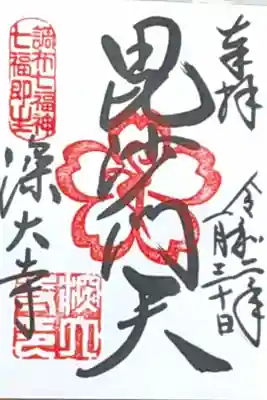 奉拝
令和二年
三十日
毘沙門天
調布七福神
七福即生
深大寺